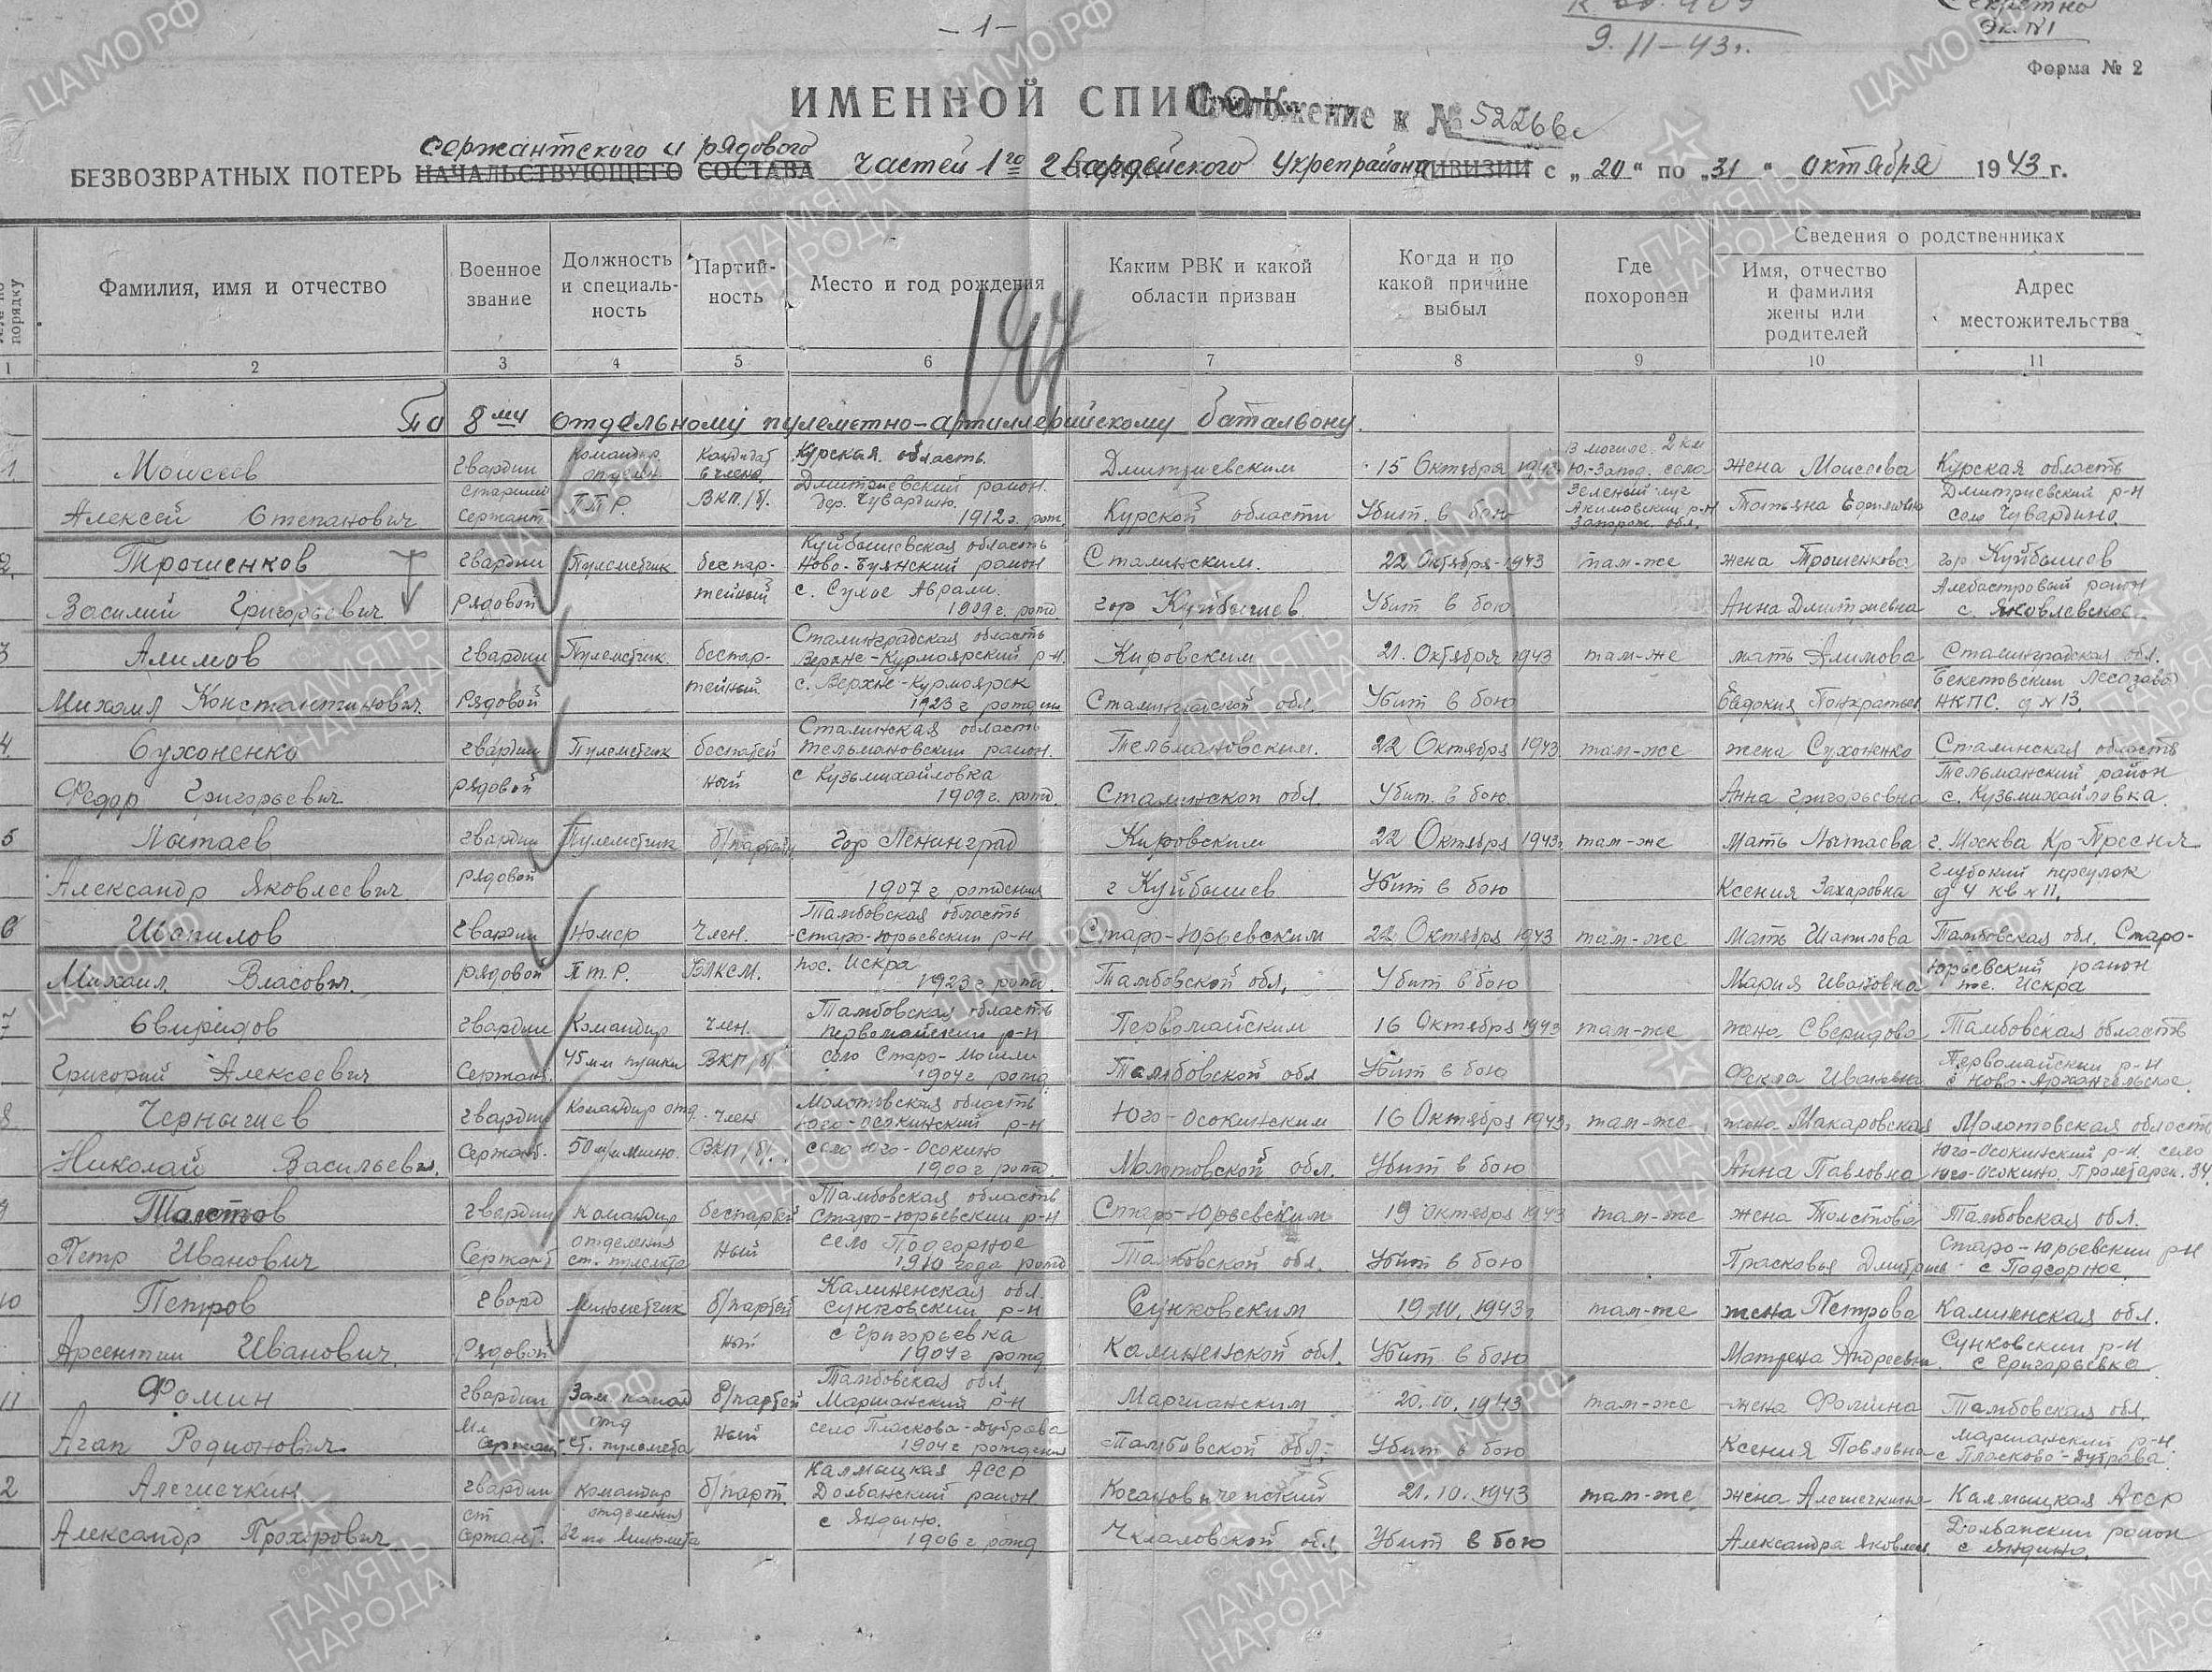 - 1 -
9.11-43г.
Секретно
Эк. №1
Форма № 2
ИМЕННОЙ СПИСОК
Приложение к № 52266с
сержантского и рядового
БЕЗВОЗВРАТНЫХ ПОТЕРЬ НАЧАЛЬСТВУЮЩЕГО СОСТАВА частей 1го гвардейского Укрепрайона ДИВИЗИИ с „20“ по „31“ октября 1943 г.
№№ по порядку
Фамилия, имя и отчество
Военное звание
Должность и специальность
Партийность
Место и год рождения
Каким РВК и какой области призван
Когда и по какой причине выбыл
Где похоронен
Сведения о родственниках
Имя, отчество и фамилия жены или родителей
Адрес местожительства
1 2 3 4 5 6 7 8 9 10 11
По 8му отдельному пулеметно-артиллерийскому баталвону.
1 Моисеев Алексей Степанович
гвардии старший сержант
Командир отделен ПТР.
Кандидат в члены ВКП/б/.
Курская область Дмитриевский район. дер. Чувардино. 1912г. рож.
Дмитриевским Курской области
15 Октября 1943г. Убит. в бою
В могиле. 2 км Ю.-Запад. села Зеленый луг Акимовский р-н Запорож. обл.
жена Моисеева Татьяна
Курская область Дмитриевский р-н село Чувардино.
2. Трошенков Василий Григорьевич
гвардии рядовой
Пулеметчик
беспартейный
Куйбышевская область Ново-Буянский район с. Сухие Аврали. 1909г. рожд
Сталинским. гор Куйбышев.
22 Октября-1943 Убит в бою.
там-же
жена Трошенкова Анна Дмитриевна
гор Куйбышев Алебастровый район с. Яковлевское
3 Алимов Михаил Константинович
гвардии рядовой
Пулеметчик.
беспартейный.
Сталинградская область Верхне-Курмоярский р-н. с. Верхне-Курмоярск 1923г рождения
Кировским Сталинградской обл.
21. Октября 1943 Убит в бою
там-же
мать Алимова Евдокия
Сталинградская обл. Бекетовский Лесозавод НКПС. д №13.
4. Сухоненко Федор Григорьевич
гвардии рядовой
Пулеметчик
беспартейный
Сталинская область Тельмановский район. с Кузьмихайловка 1909г. рожд.
Тельмановским. Сталинской обл.
22 Октября 1943. Убит. в бою
там-же
жена Сухоненко Анна Григорьевна
Сталинская область Тельманский район с. Кузьмихайловка.
5 Лытаев Александр Яковлевич
гвардии рядовой
Пулеметчик
б/партейн
гор Ленинград 1907г рождения
Кировским г Куйбышев
22 Октября 1943г. Убит в бою
там-же
Мать Лытаева Ксения Захаровна
г. Москва Кр-Пресня Глубокий переулок д 4 кв №11.
6 Шапилов Михаил Власович.
гвардии рядовой
Номер П.т.Р.
Член. ВЛКСМ.
Тамбовская область Старо-Юрьевский р-н пос. Искра 1923г рожд.
Старо-Юрьевским Тамбовской обл.
22 Октября 1943 Убит в бою
там-же
Мать Шапилова Мария Ивановна
Тамбовская обл. Старо-Юрьевский район пос. Искра
7 Свиридов Григорий Алексеевич
гвардии Сержант.
Командир 45мм пушки
член. ВКП/б/
Тамбовская область Первомайский р-н село Старо- 1904г рожд.
Первомайским Тамбовской обл
16 Октября 1943 Убит в бою
там-же
жена Сверидова Фекла Ивановна
Тамбовская область Первомайский р-н с Ново-Архангельское.
8. Чернышев Николай Васильевич.
гвардии Сержант.
Командир отд. 50 м/м мином.
член ВКП/б/.
Молотовская область Юго-Осокинский р-н село Юго-Осокино 1900г рожд.
Юго-Осокинским Молотовской обл.
16 Октября 1943г. Убит в бою
там-же.
жена Макаровская Анна Павловна
Молотовская область Юго-Осокинский р-н. село Юго-Осокино. Пролетарск. 34.
9 Толстов Петр Иванович
гвардии Сержант
Командир отделения ст. пулемета
беспартейный
Тамбовская область Старо-Юрьевский р-н село Подгорное 1910 года рожд
Старо-Юрьевским Тамбовской обл.
19 Октября 1943 Убит в бою
там-же
жена Толстова Прасковья
Тамбовская обл. Старо-Юрьевский р-н с Подгорное
10 Петров Арсентий Иванович.
гвард Рядовой
Минометчик
б/партейный
Калиненская обл. Сунковский р-н с Григорьевка 1904г рожд
Сунковским Калиненской обл.
19.10.1943г. Убит в бою
там-же
жена Петрова Матрена Андреевна.
Калиненская обл. Сунковский р-н с Григорьевка
11 Фомин Агап Родионович
гвардии Мл Сержант
Зам команд отд ст. пулемета
б/партейный
Тамбовская обл. Маршанский р-н село Пласкова-Дубрава 1904г рождения
Маршанским Тамбовской обл.
20.10.1943 Убит в бою
там-же
жена Фомина Ксения Павловна
Тамбовская обл. Маршанский р-н. с Пласково-Дубрава.
12 Алешечкин Александр Прохорович
гвардии ст сержант.
Командир отделения 82мм Миномета
б/парт.
Калмыцкая АССР Долбанский район с Яндыко. 1906г рожд
Чкаловской обл
21.10.1943 Убит в бою
там-же
жена Алешечкина Александра Яковлев.
Калмыцкая АССР Долбанский район с Яндыко.
197
ЦАМО РФ
ПАМЯТЬ НАРОДА